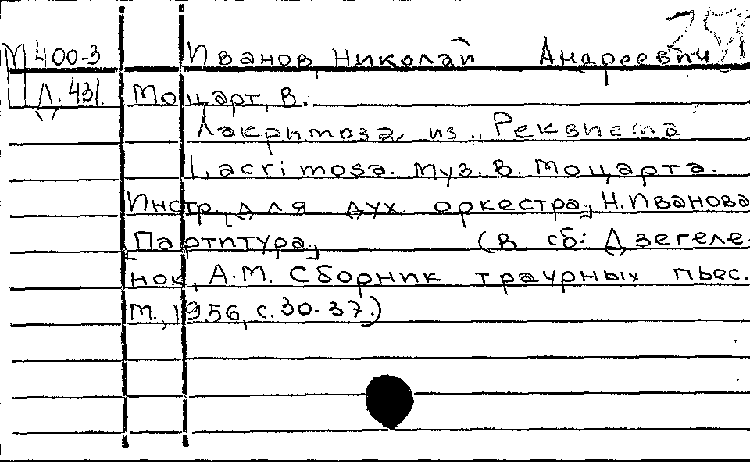 М 400-3 Иванов, Николай Андреевич
Д. 431. Моцарт, В.
Лакримоза из "Реквиема
Lacrimosa. Муз. В. Моцарта.
Инстр. для дух. оркестра Н. Иванова
[Партитура] (В сб: Дзегеле-
нок, А.М. Сборник траурных пьес.
М., 1956, с. 30-37.)